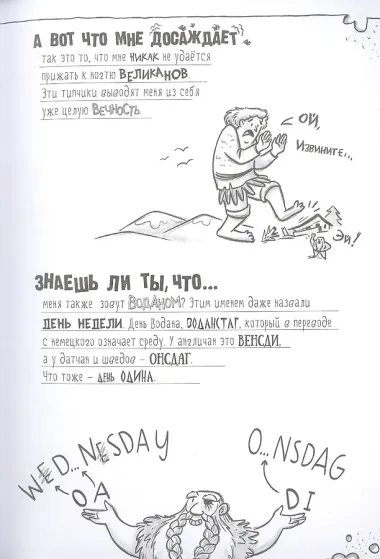 А ВОТ ЧТО МНЕ ДОСАЖДАЕТ
так это то, что мне НИКАК не удаётся
прижать к ногтю ВЕЛИКАНОВ.
Эти типчики выводят меня из себя
уже целую ВЕЧНОСТЬ.
ОЙ,
Извините...
Эй!
ЗНАЕШЬ ЛИ ТЫ, ЧТО...
меня также зовут ВОДАНОМ? Этим именем даже назвали
ДЕНЬ НЕДЕЛИ. День Водана, ВОДАНСТАГ, который в переводе
с немецкого означает среду. У англичан это ВЕНСДИ,
а у датчан и шведов – ОНСДАГ.
Что тоже – ДЕНЬ ОДИНА.
WED...NESDAY
O A
O...NSDAG
DI